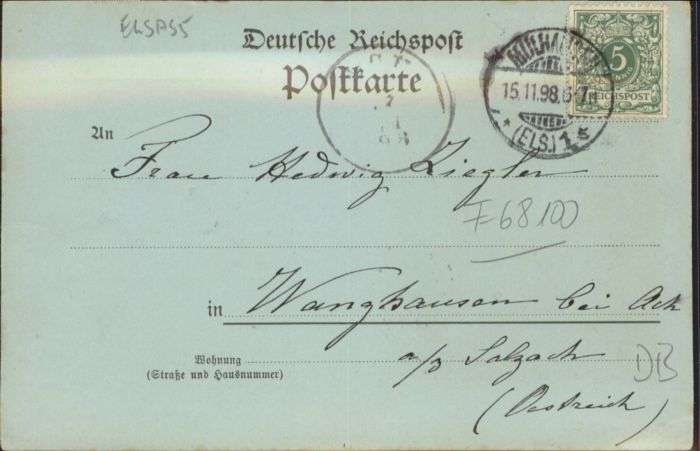 ELSASS
Deutsche Reichspost
Postkarte
MÜLHAUSEN
15.11.98. 6-7N
* (ELS.) 1 *
5
REICHSPOST
An
Frau Hedwig Ziegler
F 68100
in Wanghausen bei Ach
a/d Salzach
DB
Wohnung
(Straße und Hausnummer)
(Oestreich)